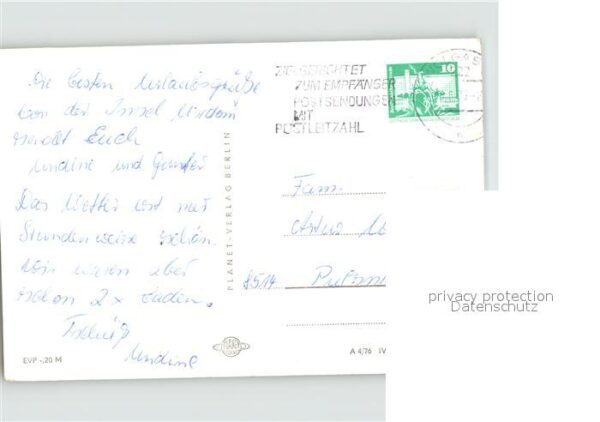 Die besten Urlaubsgrüße
von der Insel Usedom
sendet Euch
Undine und
Das Wetter ist nur
Stundenweise schön.
Wir waren aber
schon 2 x baden.
Tschüß
Undine
EVP -,20 M
PLANET-VERLAG BERLIN
A 4/76 IV
ZIELGERICHTET
ZUM EMPFÄNGER
POSTSENDUNGEN
MIT
POSTLEITZAHL
10
Fam.
Artur
8514 Pulsn
privacy protection
Datenschutz